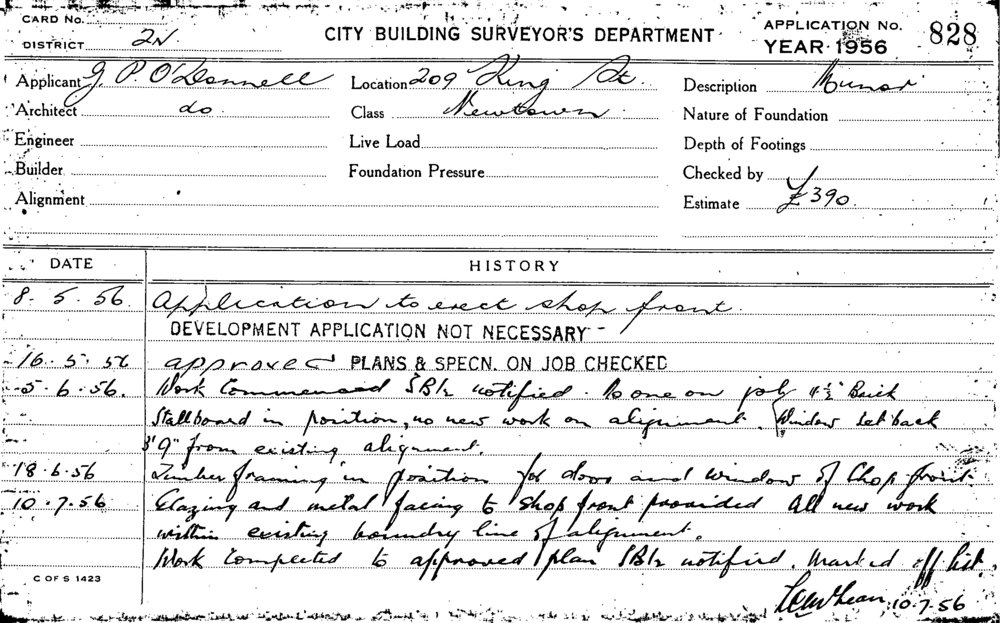 CARD No.
DISTRICT 2N
CITY BUILDING SURVEYOR'S DEPARTMENT
APPLICATION No. 828
YEAR 1956
Applicant J. P. O'Donnell
Location 209 King St.
Description Minor
Architect do
Class Newtown
Nature of Foundation
Engineer
Live Load
Depth of Footings
Builder
Foundation Pressure
Checked by
Alignment
Estimate £390.
DATE HISTORY
8. 5. 56. Application to erect shop front.
DEVELOPMENT APPLICATION NOT NECESSARY -
16. 5. 56 approved PLANS & SPECN. ON JOB CHECKED
5. 6. 56. Work Commenced notified. No one on job 4½" Brick
Stallboard in position, no new work on alignment. Window set back
3'9" from existing alignment.
18.6.56 Timber framing in position for door and window of Shop front.
10.7.56 Glazing and metal facing to shop front provided All new work
within existing boundry line of alignment.
Work Completed to approved plan notified. Marked off list.
10.7.56
C OF S 1423